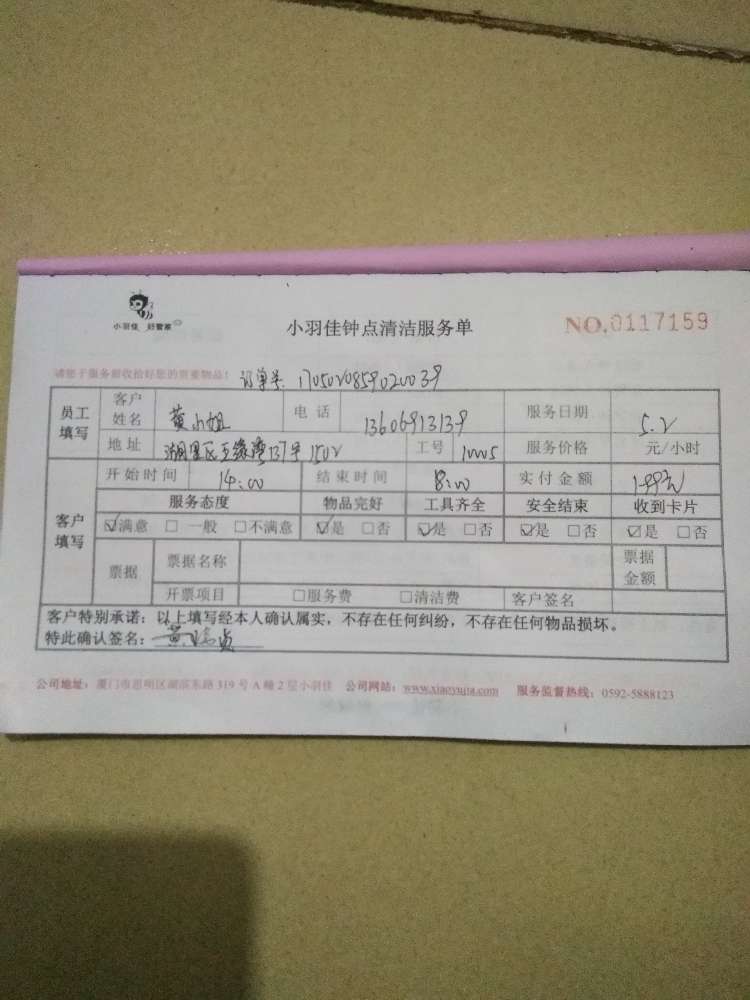 小羽佳 好管家
小羽佳钟点清洁服务单
NO.0117159
请您于服务前收拾好您的贵重物品! 订单号: 1705020859020039
员工填写 客户姓名 黄小姐 电话 13606913139 服务日期 5.2
地址 湖里区五缘湾137号1502 工号 10005 服务价格 元/小时
客户填写 开始时间 14:00 结束时间 18:00 实付金额 149元
服务态度 物品完好 工具齐全 安全结束 收到卡片
☑满意 □一般 □不满意 ☑是 □否 ☑是 □否 ☑是 □否 ☑是 □否
票据 票据名称 票据金额
开票项目 □服务费 □清洁费 客户签名
客户特别承诺:以上填写经本人确认属实,不存在任何纠纷,不存在任何物品损坏。
特此确认签名: 黄
公司地址:厦门市思明区湖滨东路319号A幢2层小羽佳 公司网站:www.xiaoyujia.com 服务监督热线:0592-5888123